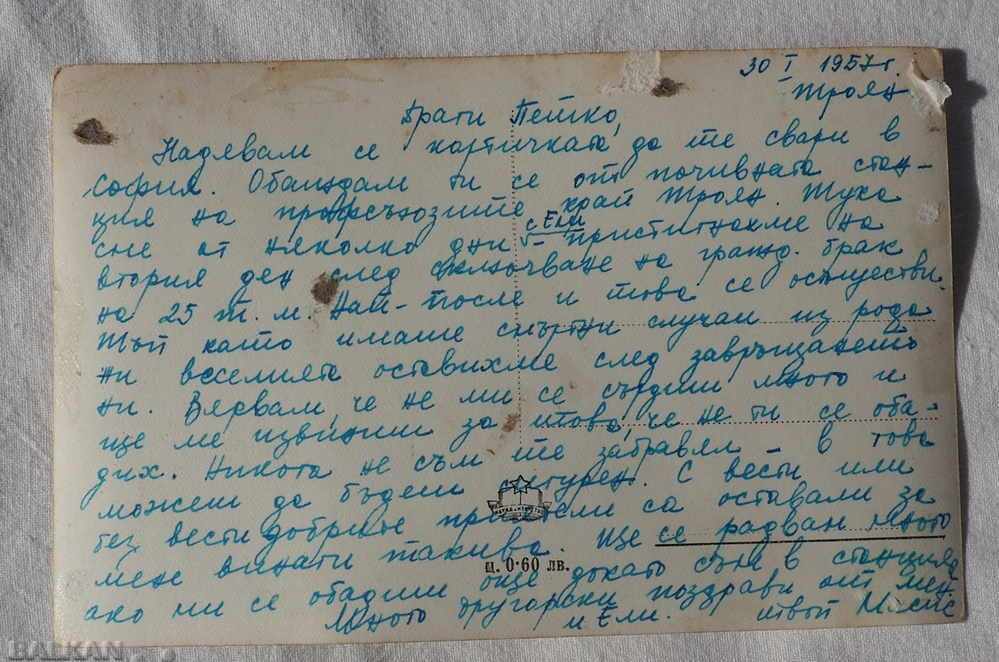 30 I 1957 г.
Троян
Драги Петко,
Надявам се картичката да те свари в
София. Обаждам ти се от почивната стан-
ция на профсъюзите край Троян. Тука
сме от няколко дни с Ели – пристигнахме на
втория ден след сключване на гражд. брак
на 25 т. м. Най-после и това се осъществи.
Тъй като имаше смъртни случаи из рода
ни веселията оставихме след завръщането
ни. Вярвам, че не ми се сърдиш много и
ще ме извиниш за това, че не ти се оба-
дих. Никога не съм те забравял – в това
можеш да бъдеш сигурен. С вести или
без вести добрите приятели са оставали за
мене винаги такива. Ще се радвам много
ако ми се обадиш още докато съм в станцията
Много другарски поздрави от мен
и Ели. твой
ц. 0·60 лв.
BALKAN